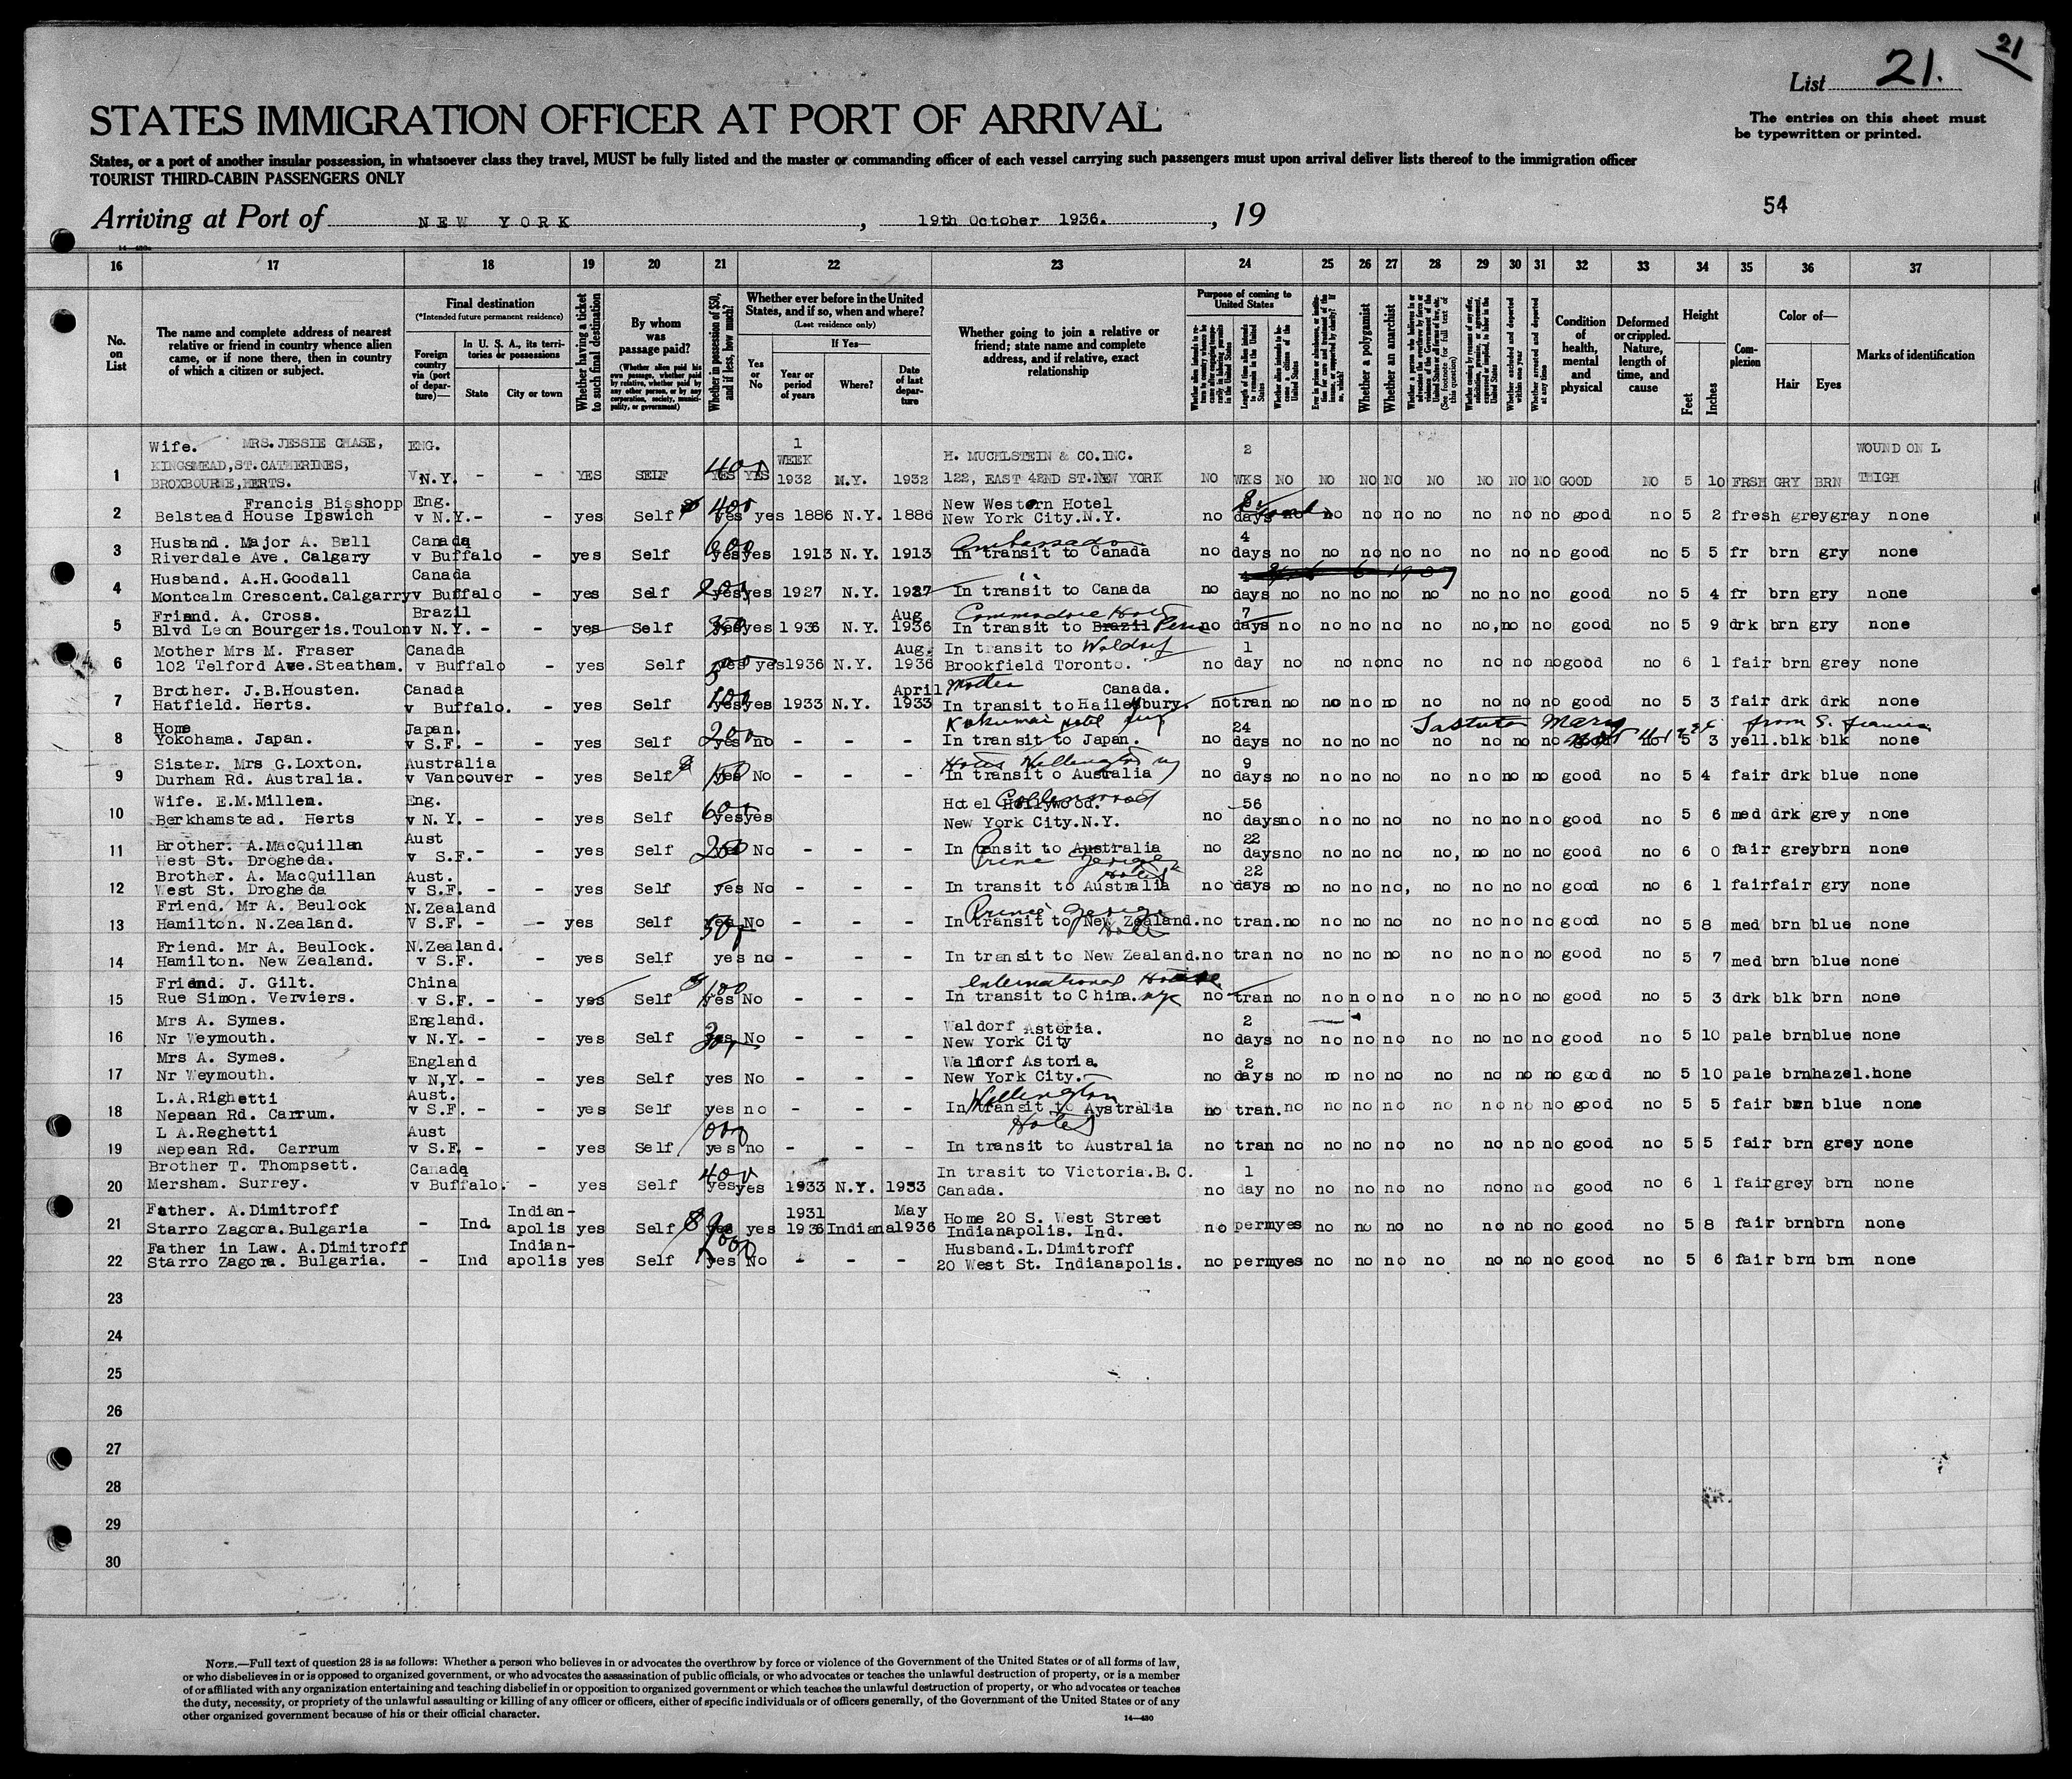 21
List 21.
STATES IMMIGRATION OFFICER AT PORT OF ARRIVAL
The entries on this sheet must
be typewritten or printed.
States, or a port of another insular possession, in whatsoever class they travel, MUST be fully listed and the master or commanding officer of each vessel carrying such passengers must upon arrival deliver lists thereof to the immigration officer
TOURIST THIRD-CABIN PASSENGERS ONLY
54
Arriving at Port of NEW YORK, 19th October 1936., 19
16 17 18 19 20 21 22 23 24 25 26 27 28 29 30 31 32 33 34 35 36 37
No. on List
The name and complete address of nearest relative or friend in country whence alien came, or if none there, then in country of which a citizen or subject.
Final destination
(*Intended future permanent residence)
Foreign country via (port of departure)—
In U. S. A., its territories or possessions
State
City or town
Whether having a ticket to such final destination
By whom was passage paid?
(Whether alien paid his own passage, whether paid by relative, whether paid by any other person, or by any corporation, society, municipality, or government)
Whether in possession of $50, and if less, how much?
Whether ever before in the United States, and if so, when and where?
(Last residence only)
Yes or No
If Yes—
Year or period of years
Where?
Date of last departure
Whether going to join a relative or friend; state name and complete address, and if relative, exact relationship
Purpose of coming to United States
Length of time alien intends to remain in the United States
Whether a polygamist
Whether an anarchist
Condition of health, mental and physical
Deformed or crippled. Nature, length of time, and cause
Height
Feet
Inches
Complexion
Color of—
Hair
Eyes
Marks of identification
Wife. MRS.JESSIE CHASE, ENG. 1 H. MUCHLSTEIN & CO.INC. 2 WOUND ON L
KINGSMEAD,ST.CATHERINES, WEEK
1 BROXBOURNE,HERTS. V N.Y. - - YES SELF 400 YES YES 1932 N.Y. 1932 122, EAST 42ND ST.NEW YORK NO WKS NO NO NO NO NO NO NO NO GOOD NO 5 10 FRSH GRY BRN THIGH
Francis Bisshopp Eng. New Western Hotel 8
2 Belstead House Ipswich v N.Y.- - yes Self 400 yes yes 1886 N.Y. 1886 New York City.N.Y. no days no no no no no no no no good no 5 2 fresh grey gray none
Husband. Major A. Bell Canada Ambassador 4
3 Riverdale Ave. Calgary v Buffalo - yes Self 600 yes yes 1913 N.Y. 1913 In transit to Canada no days no no no no no no no no good no 5 5 fr brn gry none
Husband. A.H.Goodall Canada
4 Montcalm Crescent.Calgarry v Buffalo - yes Self 200 yes yes 1927 N.Y. 1927 In transit to Canada no days no no no no no no no no good no 5 4 fr brn gry none
Friend. A. Cross. Brazil Aug Commodore Hotel 7
5 Blvd Leon Bourgeris.Toulon v N.Y. - - yes Self yes yes 1936 N.Y. 1936 In transit to Brazil Peru no days no no no no no no, no no good no 5 9 drk brn gry none
Mother Mrs M. Fraser Canada Aug. In transit to Waldorf 1
6 102 Telford Ave.Steatham. v Buffalo - yes Self yes yes 1936 N.Y. 1936 Brookfield Toronto. no day no no no no no no no no good no 6 1 fair brn grey none
Brother. J.B.Housten. Canada April Mother Canada.
7 Hatfield. Herts. v Buffalo. - yes Self 100 yes yes 1933 N.Y. 1933 In transit to Haileybury. no tran no no no no no no no no good no 5 3 fair drk drk none
Home Japan. 24 from S. Francisco
8 Yokohama. Japan. v S.F. - - yes Self 200 yes no - - - In transit to Japan. no days no no no no no no no no good no 5 3 yell.blk blk none
Sister. Mrs G.Loxton. Australia Hotel Wellington NY 9
9 Durham Rd. Australia. v Vancouver - yes Self 150 yes No - - - In transit o Australia no days no no no no no no no no good no 5 4 fair drk blue none
Wife. E.M.Millen. Eng. Hotel Hollywood. Collingwood 56
10 Berkhamstead. Herts v N.Y. - - yes Self 600 yes yes New York City.N.Y. no days no no no no no no no no good no 5 6 med drk grey none
Brother. A.MacQuillan Aust 22
11 West St. Drogheda. v S.F. - - yes Self 250 yes No - - - In transit to Australia no days no no no no no, no no no good no 6 0 fair grey brn none
Prince George Hotel
Brother. A. MacQuillan Aust. 22
12 West St. Drogheda v S.F. - - yes Self yes No - - - In transit to Australia no days no no no no, no no no no good no 6 1 fair fair gry none
Friend. Mr A. Beulock N.Zealand Prince George Hotel
13 Hamilton. N.Zealand. V S.F. - - yes Self 50 yes No - - - In transit to New Zealand.no tran.no no no no no no no no good no 5 8 med brn blue none
Friend. Mr A. Beulock. N.Zealand.
14 Hamilton. New Zealand. v S.F. - yes Self yes no - - - In transit to New Zealand.no tran no no no no no no no no good no 5 7 med brn blue none
Friend. J. Gilt. China International House
15 Rue Simon. Verviers. v S.F. - - yes Self 100 yes No - - - In transit to China. NYC no tran no no no no no no no no good no 5 3 drk blk brn none
Mrs A. Symes. England. Waldorf Astoria. 2
16 Nr Weymouth. v N.Y. - - yes Self yes No - - - New York City no days no no no no no no no no good no 5 10 pale brn blue none
Mrs A. Symes. England Waldorf Astoria. 2
17 Nr Weymouth. v N,Y. - - yes Self yes No - - - New York City. no days no no no no no no no no good no 5 10 pale brn hazel.none
L.A.Righetti Aust. Wellington
18 Nepean Rd. Carrum. v S.F. - - yes Self yes no - - - In transit to Aystralia no tran.no no no no no no no no good no 5 5 fair brn blue none
L A.Reghetti Aust Hotel
19 Nepean Rd. Carrum v S.F. - - yes Self yes no - - - In transit to Australia no tran no no no no no no no no good no 5 5 fair brn grey none
Brother T. Thompsett. Canada In trasit to Victoria.B.C. 1
20 Mersham. Surrey. v Buffalo. - yes Self 400 yes yes 1933 N.Y. 1933 Canada. no day no no no no no no no no good no 6 1 fair grey brn none
Father. A.Dimitroff Indian- 1931 May Home 20 S. West Street
21 Starro Zagora.Bulgaria - Ind. apolis yes Self yes yes 1936 Indiana 1936 Indianapolis. Ind. no perm yes no no no no no no no good no 5 8 fair brn brn none
Father in Law. A.Dimitroff Indian- Husband.L.Dimitroff
22 Starro Zagora. Bulgaria. - Ind apolis yes Self yes No - - - 20 West St. Indianapolis. no perm yes no no no no no no no good no 5 6 fair brn brn none
23
24
25
26
27
28
29
30
NOTE.—Full text of question 28 is as follows: Whether a person who believes in or advocates the overthrow by force or violence of the Government of the United States or of all forms of law,
or who disbelieves in or is opposed to organized government, or who advocates the assassination of public officials, or who advocates or teaches the unlawful destruction of property, or is a member
of or affiliated with any organization entertaining and teaching disbelief in or opposition to organized government or which teaches the unlawful destruction of property, or who advocates or teaches
the duty, necessity, or propriety of the unlawful assaulting or killing of any officer or officers, either of specific individuals or of officers generally, of the Government of the United States or of any
other organized government because of his or their official character.
14—430